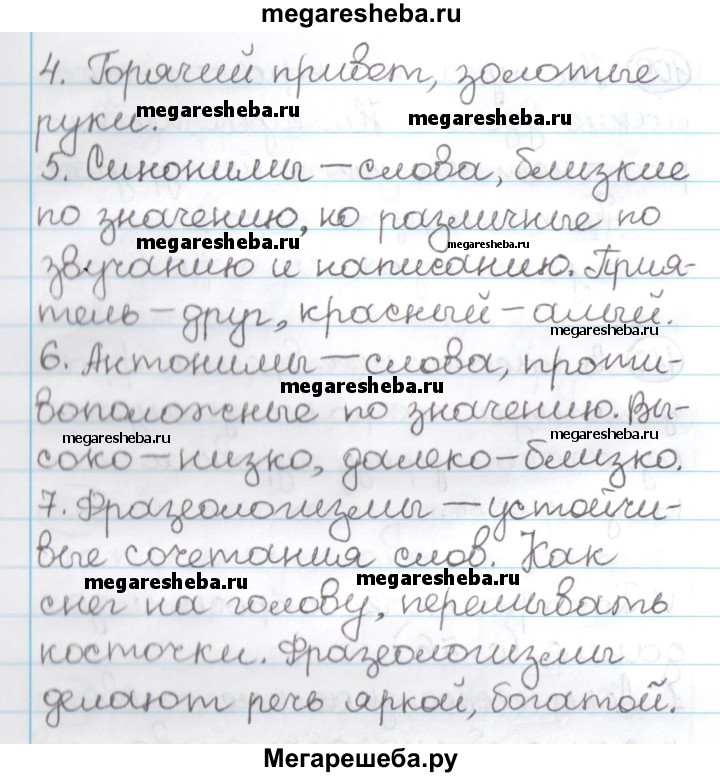 megaresheba.ru
4. Горячий привет, золотые
megaresheba.ru megaresheba.ru
руки.
5. Синонимы – слова, близкие
по значению, но различные по
megaresheba.ru megaresheba.ru
звучанию и написанию. Прия-
тель – друг, красный – алый.
megaresheba.ru
6. Антонимы – слова, проти-
megaresheba.ru
воположные по значению. Вы-
megaresheba.ru megaresheba.ru
соко – низко, далеко – близко.
7. Фразеологизмы – устойчи-
вые сочетания слов. Как
megaresheba.ru megaresheba.ru
снег на голову, перемывать
косточки. Фразеологизмы
делают речь яркой, богатой.
Мегарешеба.ру